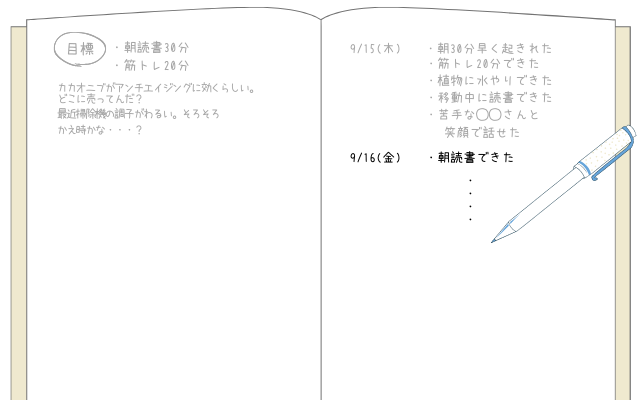 目標
・朝読書30分
・筋トレ20分
カカオニブがアンチエイジングに効くらしい。
どこに売ってんだ？
最近掃除機の調子がわるい。そろそろ
かえ時かな・・・？
9/15(木) ・朝30分早く起きれた
・筋トレ20分できた
・植物に水やりできた
・移動中に読書できた
・苦手な◯◯さんと
笑顔で話せた
9/16(金) ・朝読書できた
・
・
・
・